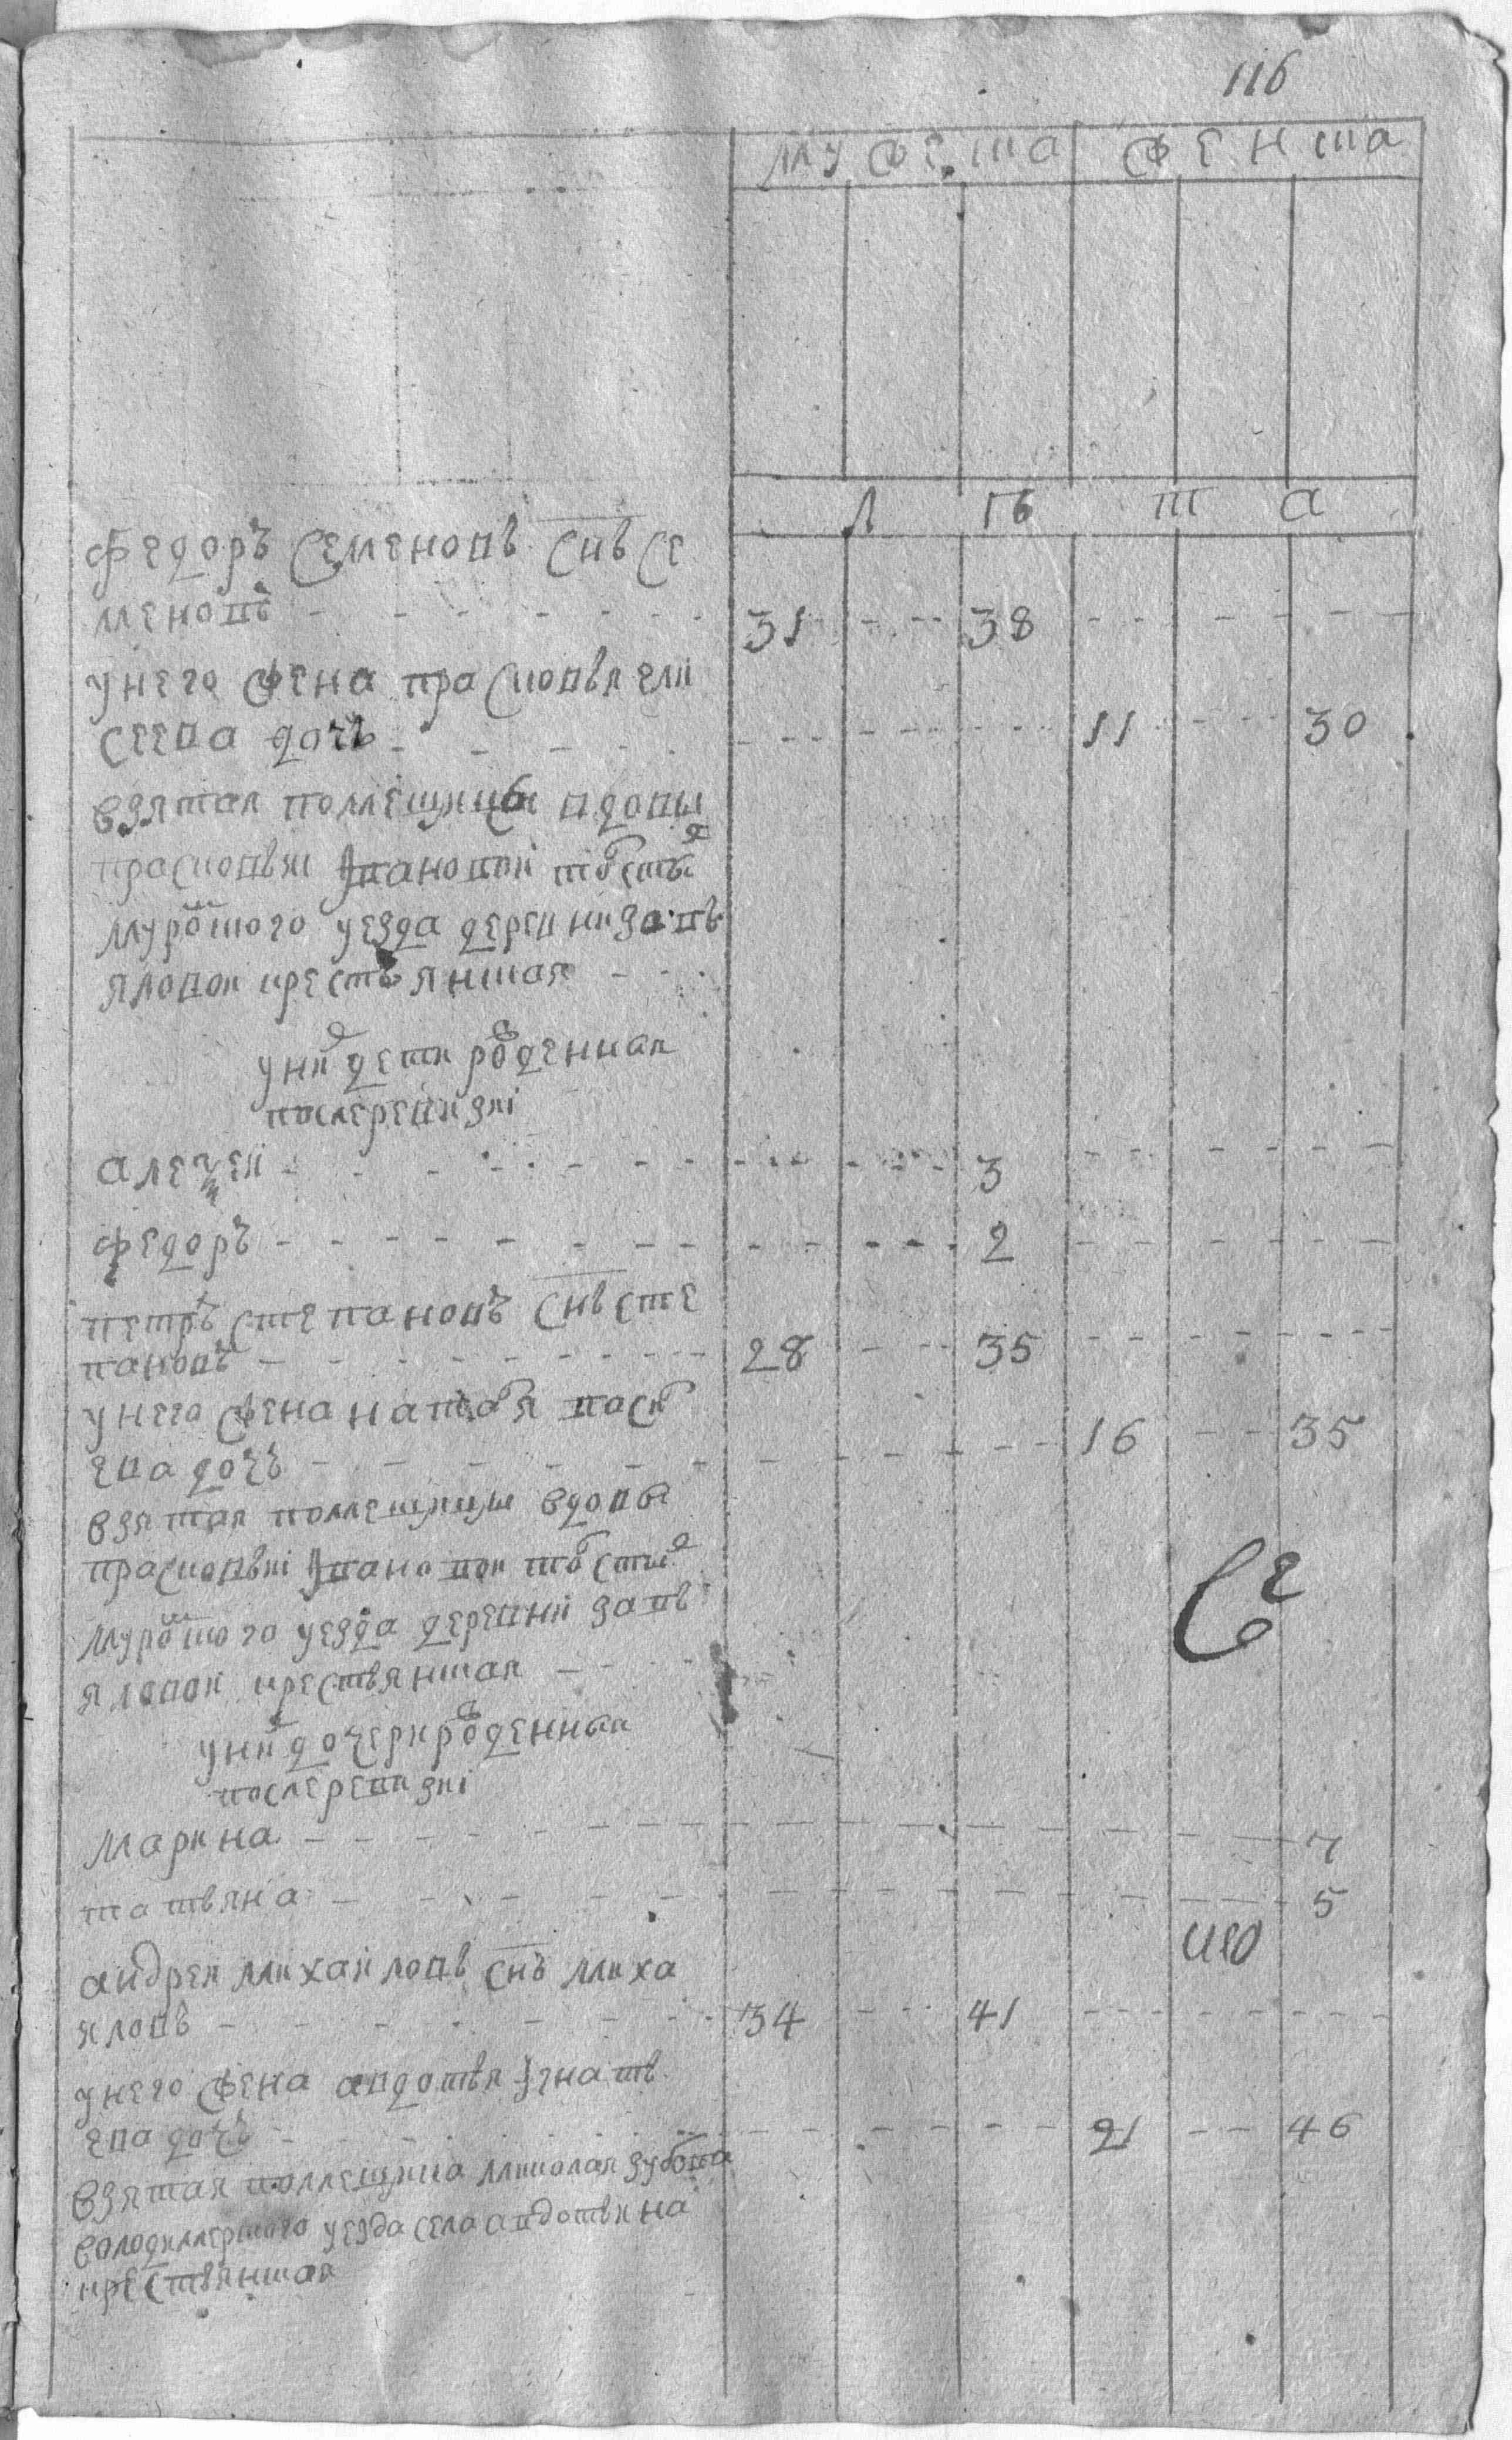 116
муžеска женска
л ѣ т а
Федоръ Семеновъ снъ Се
меновъ - - - 31 - - 38 - - -
у него жена Прасковья Ели
сеева дочь - - - 11 - - 30
взятая помещицы вдовы
Прасковьи Ивановой Толстыя
Муромского уезда деревни Запъ
яловой крестьянская - - -
у них дети рожденная
после ревизиї
Алексей - - - 3 - - -
Федоръ - - - 2 - - -
Петръ Степановъ снъ Сте
пановъ - - - 28 - - 35 - - -
у него жена Наталья Васил
ева дочь - - - 16 - - 35
взятая помещицы вдовы
Прасковьи Ивановой Толстыя
Муромского уезда деревни Запъ
яловой крестьянская - - -
Се
у них дочери рожденныя
после ревизиї
Марина - - - 7
Татьяна - - - 5
кю
Андрей Михайловъ снъ Миха
йловъ - - - 34 - - 41 - - -
у него жена Авдотья Игнать
ева дочь - - - 21 - - 46
взятая помещика Миколая Зубова
Володимерского уезда села Авдотьина
крестьянская